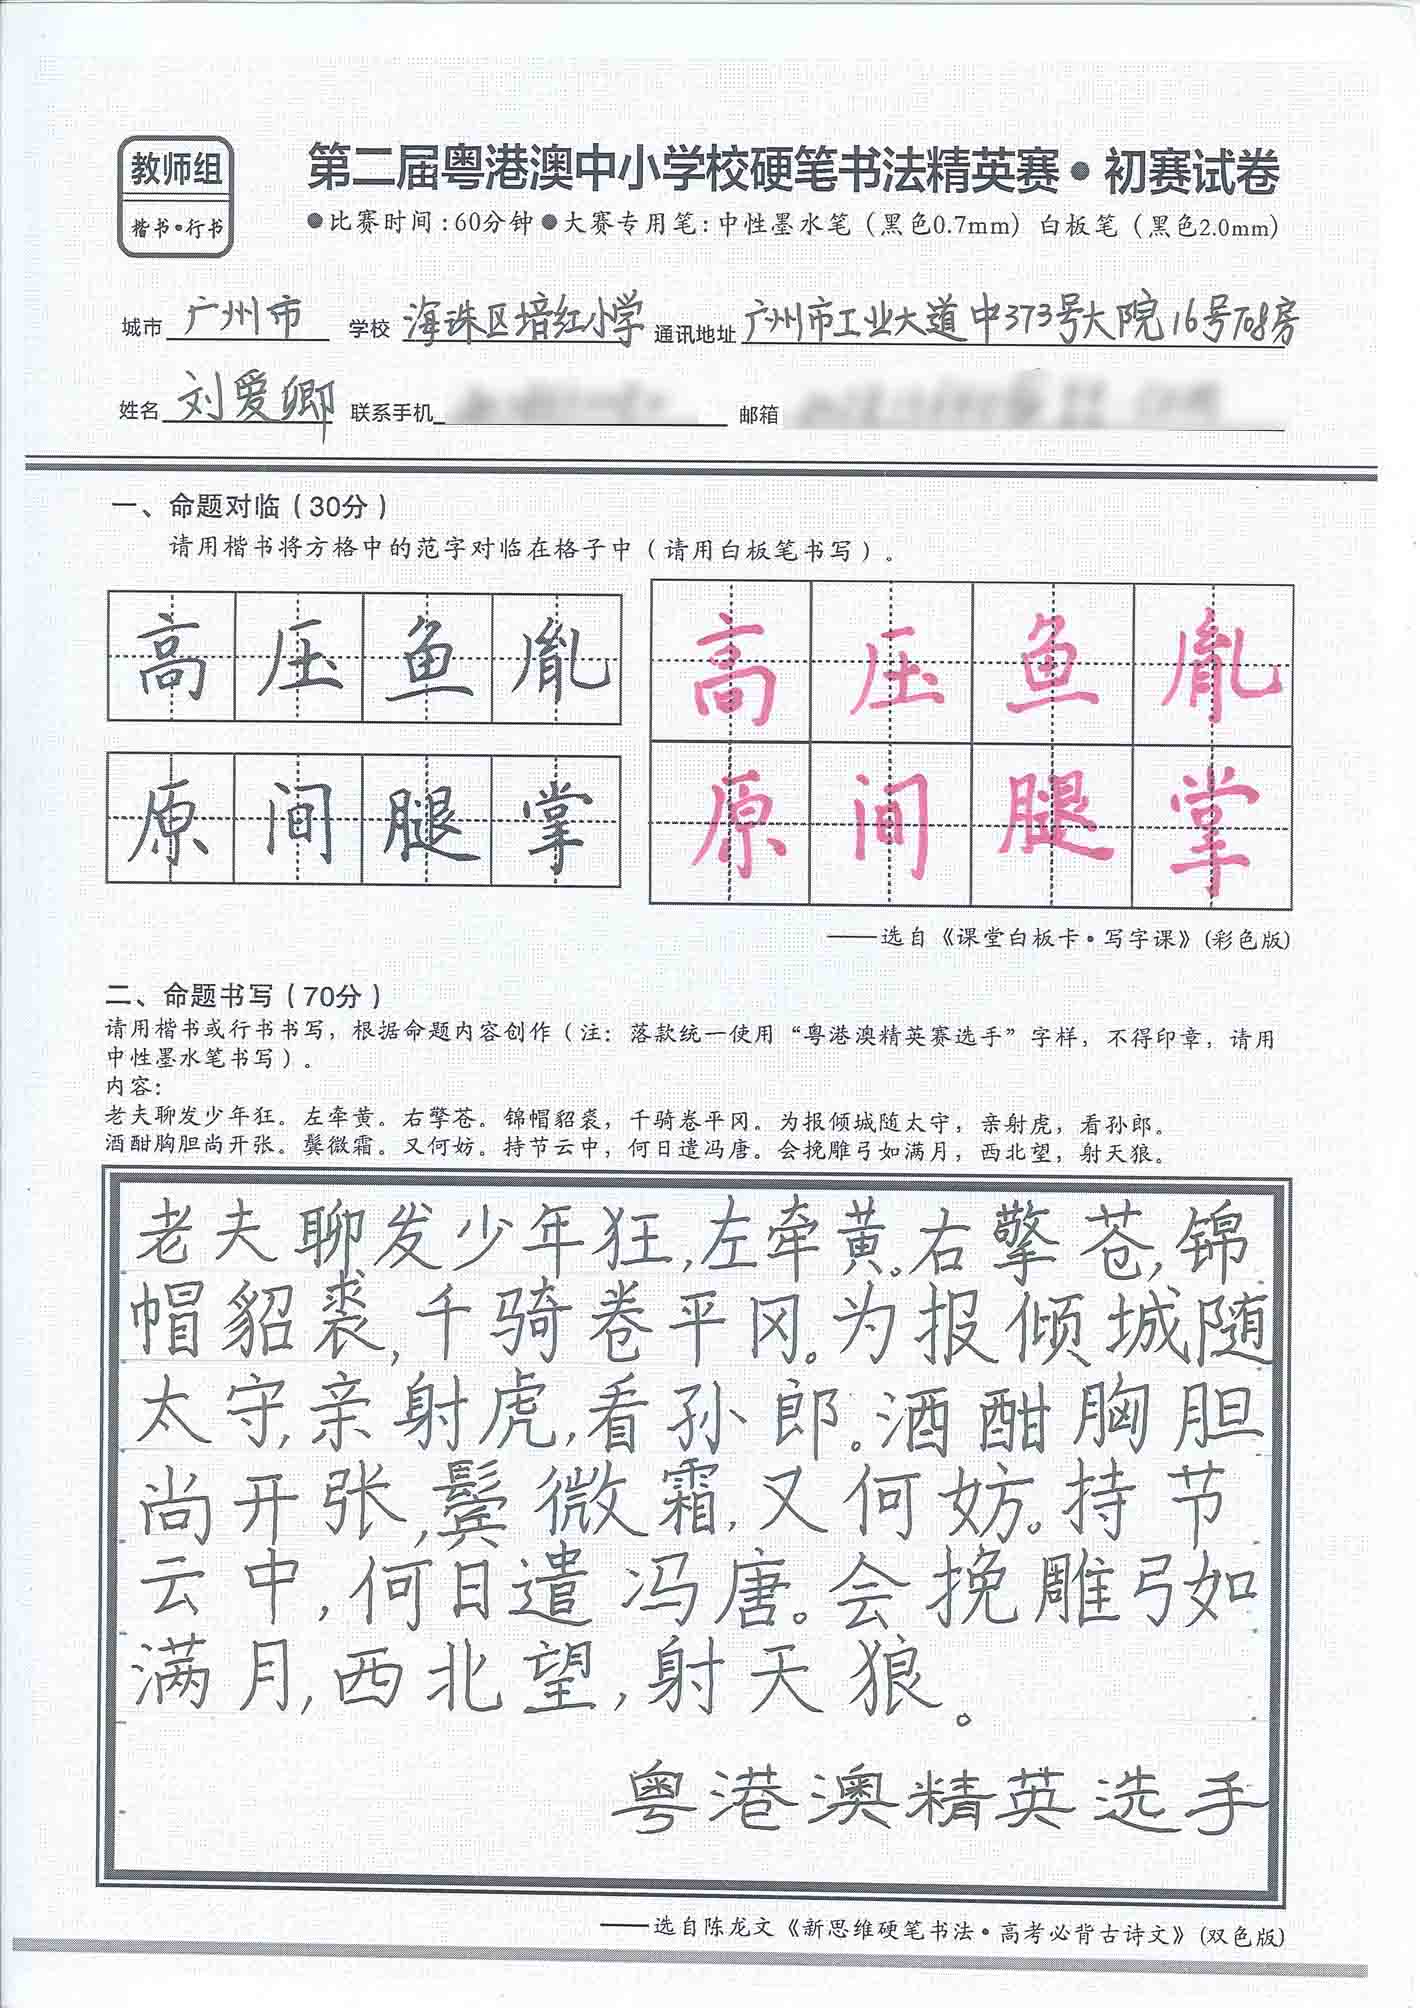 教师组
楷书·行书
第二届粤港澳中小学校硬笔书法精英赛·初赛试卷
●比赛时间:60分钟●大赛专用笔:中性墨水笔(黑色0.7mm)白板笔(黑色2.0mm)
城市 广州市 学校 海珠区培红小学 通讯地址 广州市工业大道中373号大院16号708房
姓名 刘爱卿 联系手机 邮箱
一、命题对临(30分)
请用楷书将方格中的范字对临在格子中(请用白板笔书写)。
高压鱼胤 高压鱼胤
原间腿掌 原间腿掌
——选自《课堂白板卡·写字课》(彩色版)
二、命题书写(70分)
请用楷书或行书书写,根据命题内容创作(注:落款统一使用“粤港澳精英赛选手”字样,不得印章,请用
中性墨水笔书写)。
内容:
老夫聊发少年狂。左牵黄。右擎苍。锦帽貂裘,千骑卷平冈。为报倾城随太守,亲射虎,看孙郎。
酒酣胸胆尚开张。鬓微霜。又何妨。持节云中,何日遣冯唐。会挽雕弓如满月,西北望,射天狼。
老夫聊发少年狂,左牵黄。右擎苍,锦
帽貂裘,千骑卷平冈。为报倾城随
太守,亲射虎,看孙郎。酒酣胸胆
尚开张,鬓微霜,又何妨。持节
云中,何日遣冯唐。会挽雕弓如
满月,西北望,射天狼。
粤港澳精英选手
——选自陈龙文《新思维硬笔书法·高考必背古诗文》(双色版)